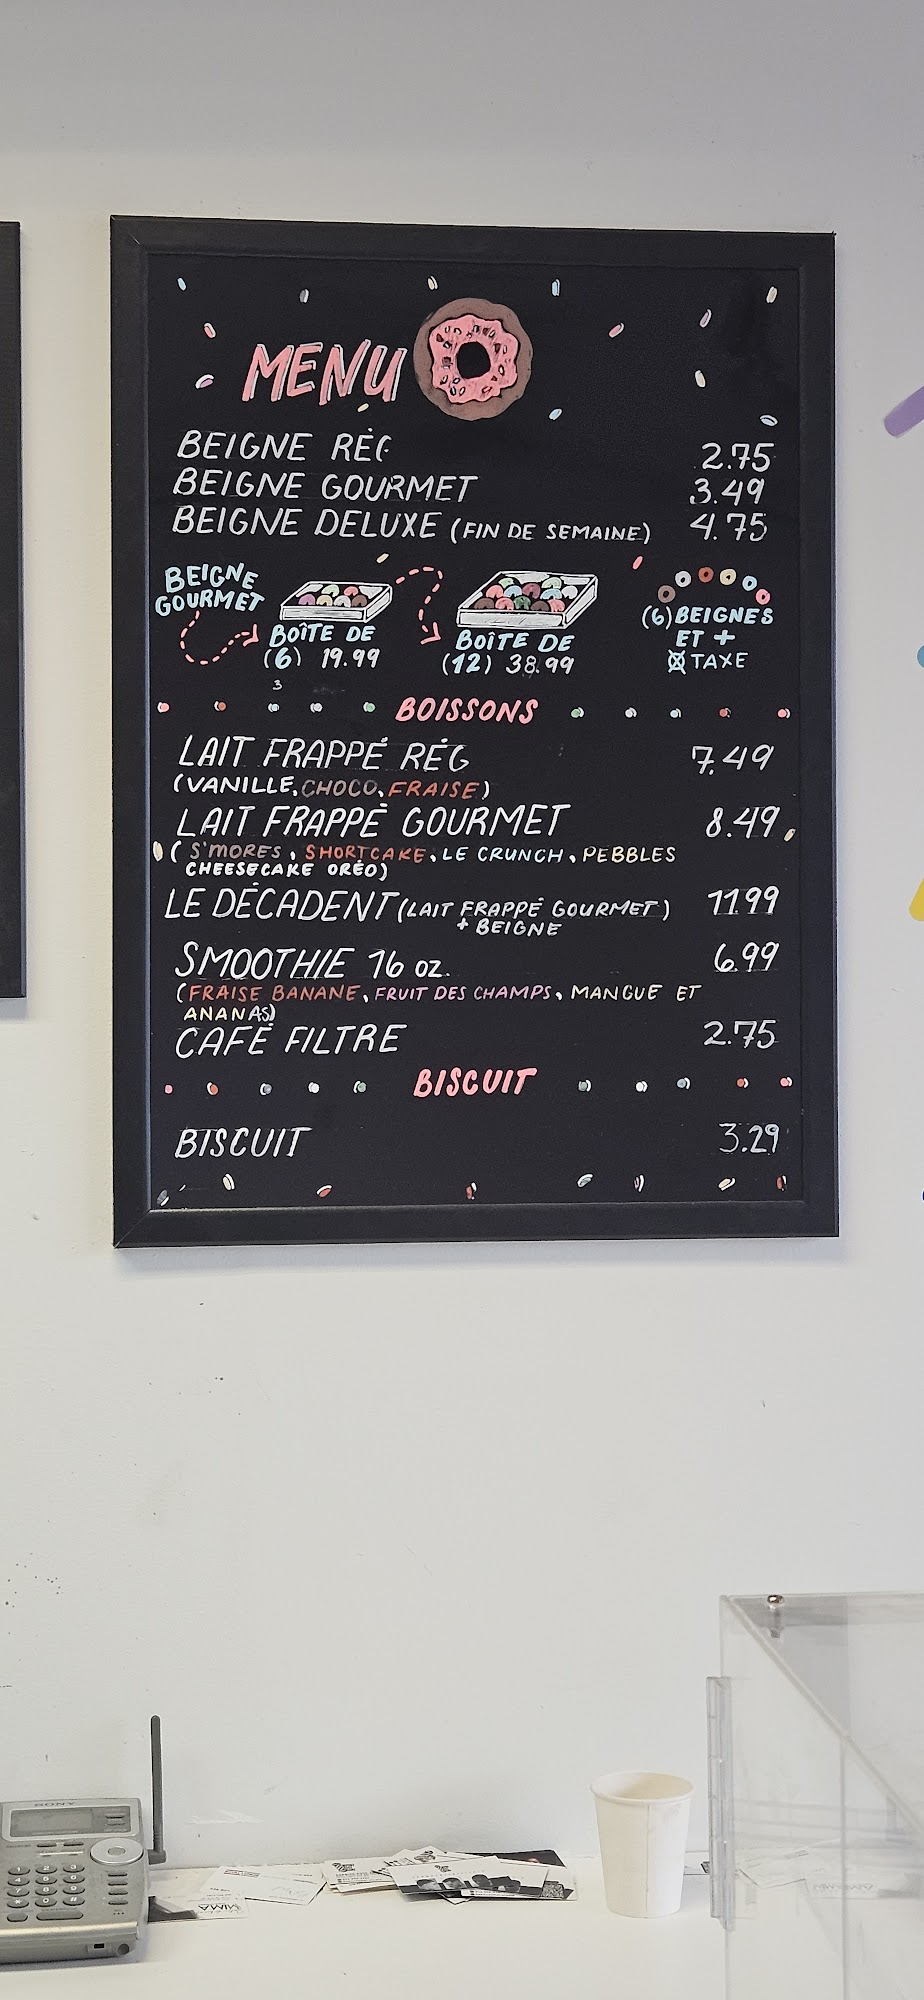 MENU
BEIGNE RÉG 2.75
BEIGNE GOURMET 3.49
BEIGNE DELUXE (FIN DE SEMAINE) 4.75
BEIGNE
GOURMET
BOÎTE DE
(6) 19.99
BOÎTE DE
(12) 38.99
(6) BEIGNES
ET +
TAXE
BOISSONS
LAIT FRAPPÉ RÉG 7.49
(VANILLE, CHOCO, FRAISE)
LAIT FRAPPÉ GOURMET 8.49
(S'MORES, SHORTCAKE, LE CRUNCH, PEBBLES
CHEESECAKE ORÉO)
LE DÉCADENT (LAIT FRAPPÉ GOURMET) 11.99
+ BEIGNE
SMOOTHIE 16 oz. 6.99
(FRAISE BANANE, FRUIT DES CHAMPS, MANGUE ET
ANANAS)
CAFÉ FILTRE 2.75
BISCUIT
BISCUIT 3.29
SONY
MIMA